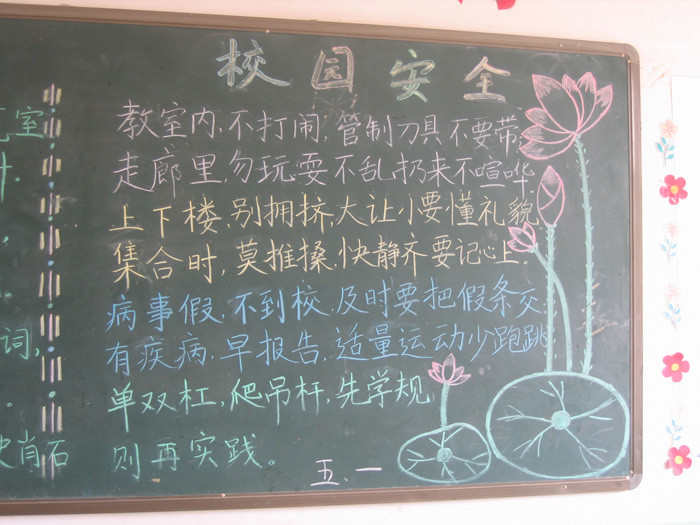 校园安全
教室内,不打闹,管制刀具不要带,
走廊里,勿玩耍,不乱扔来不喧哗.
上下楼,别拥挤,大让小要懂礼貌,
集合时,莫推搡.快静齐要记心上.
病事假.不到校.及时要把假条交.
有疾病.早报告.适量运动少跑跳.
单双杠,爬吊杆.先学规
则再实践。
五.一
室
词,
石